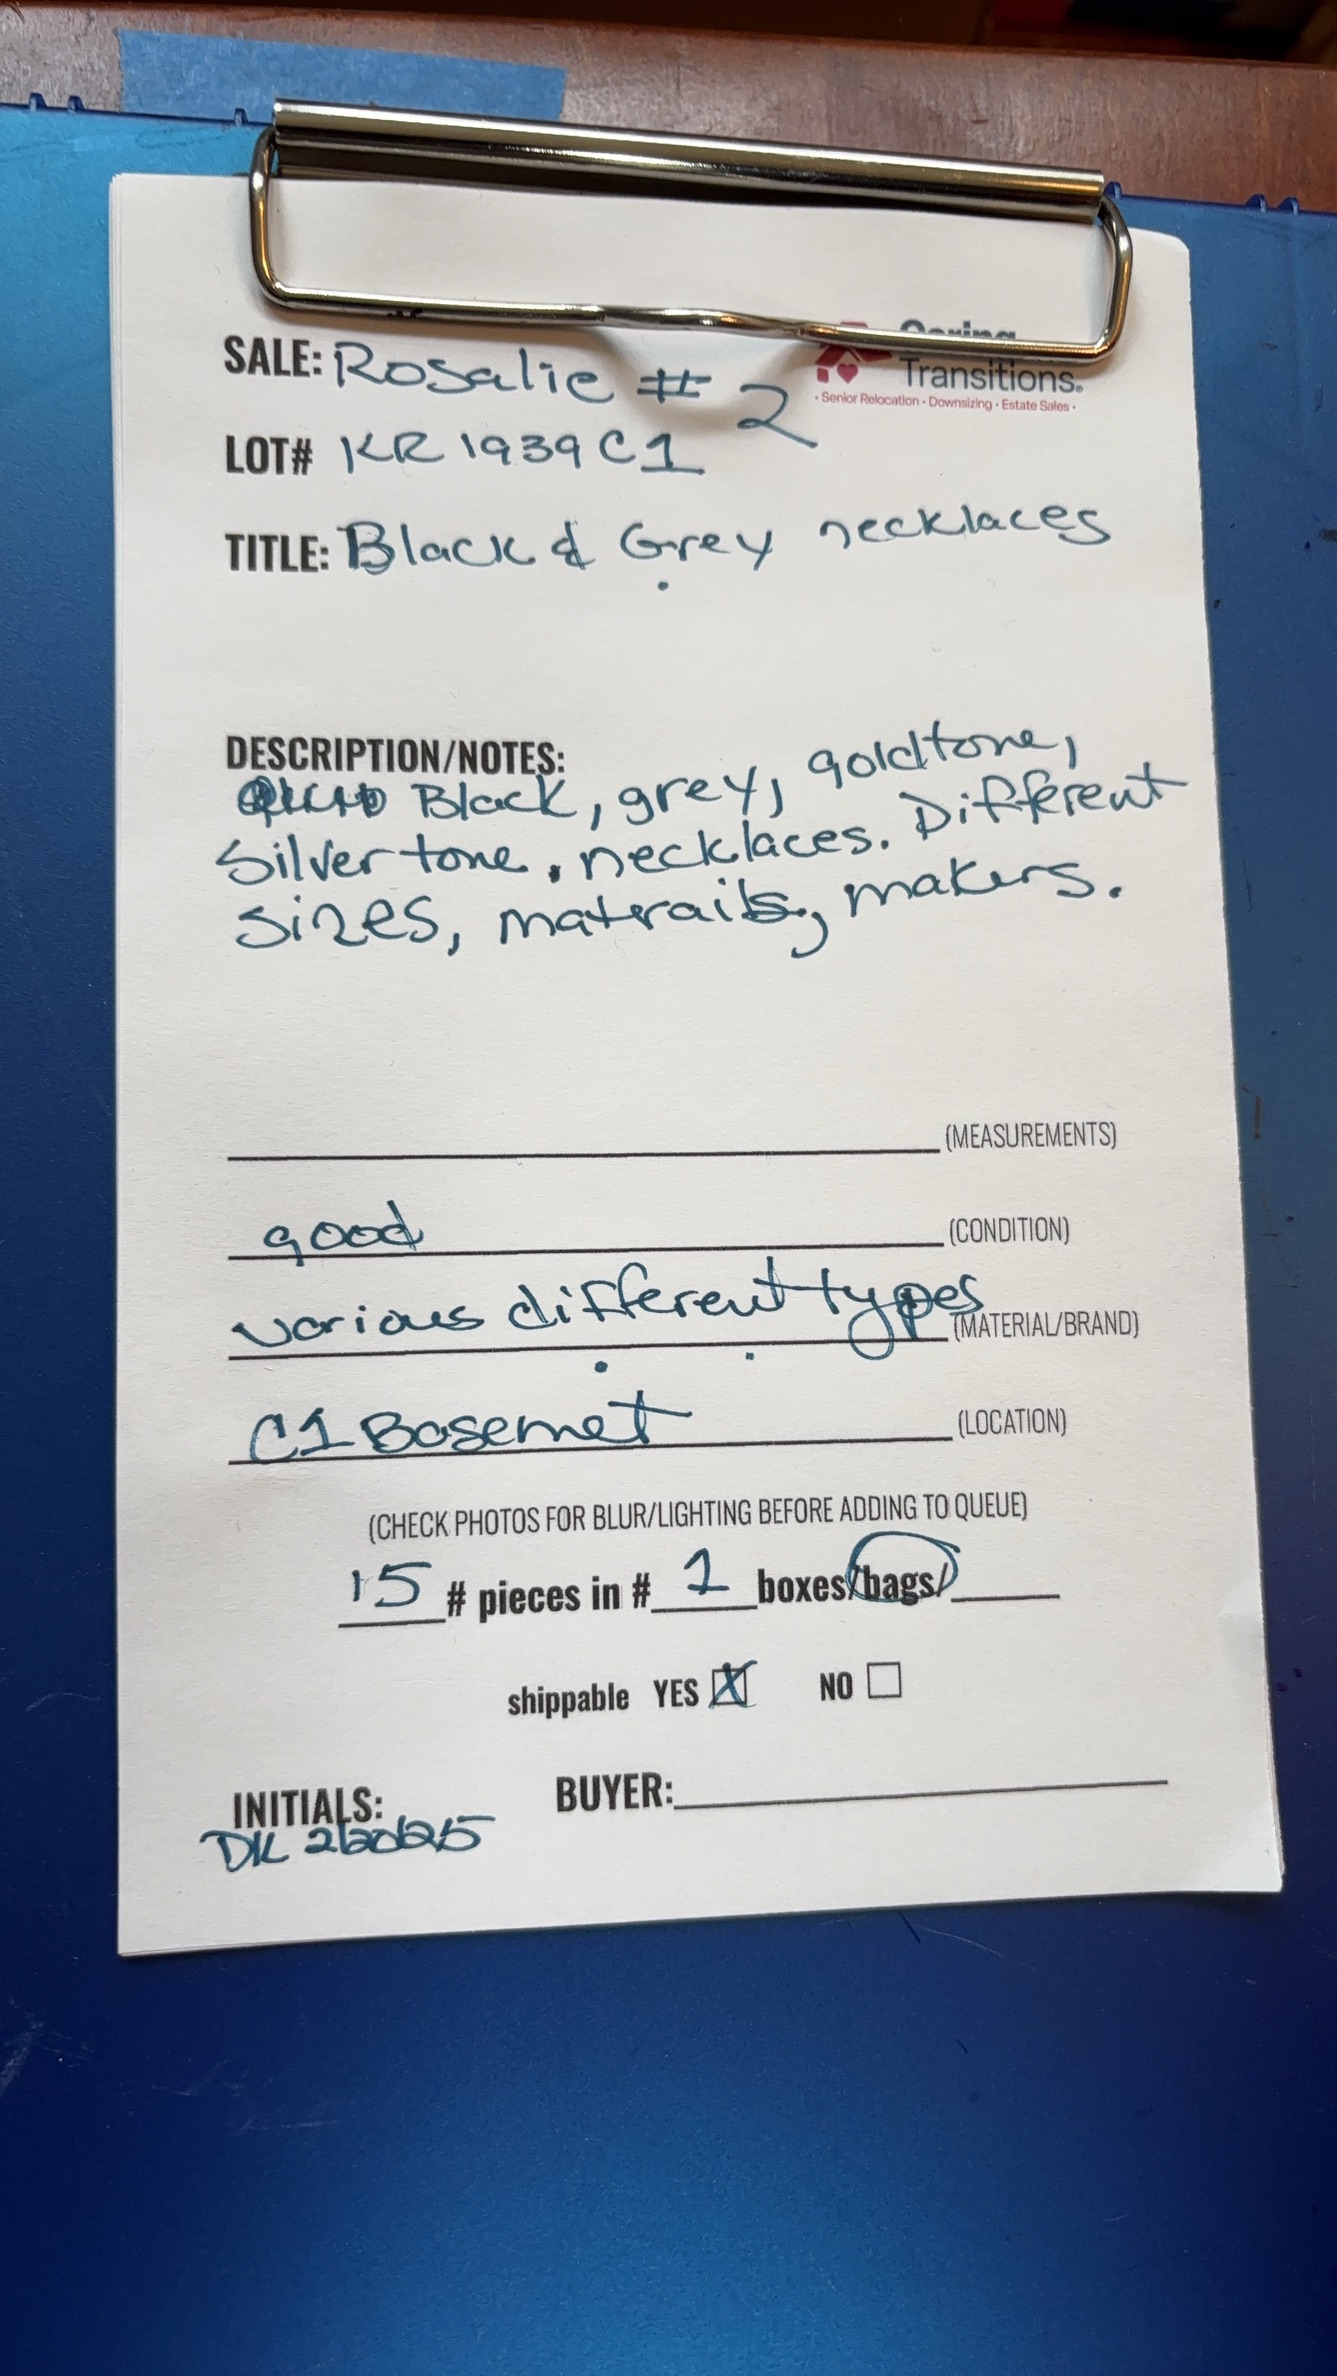 SALE: Rosalie # 2
Transitions®
• Senior Relocation • Downsizing • Estate Sales •
LOT# KR1939C1
TITLE: Black & Grey necklaces
DESCRIPTION/NOTES:
Black, grey, goldtone,
Silvertone, necklaces. Different
sizes, matrails, makers.
(MEASUREMENTS)
good (CONDITION)
various different types (MATERIAL/BRAND)
C1 Basemet (LOCATION)
(CHECK PHOTOS FOR BLUR/LIGHTING BEFORE ADDING TO QUEUE)
15 # pieces in # 1 boxes/bags/
shippable YES X NO
INITIALS: BUYER:
DK